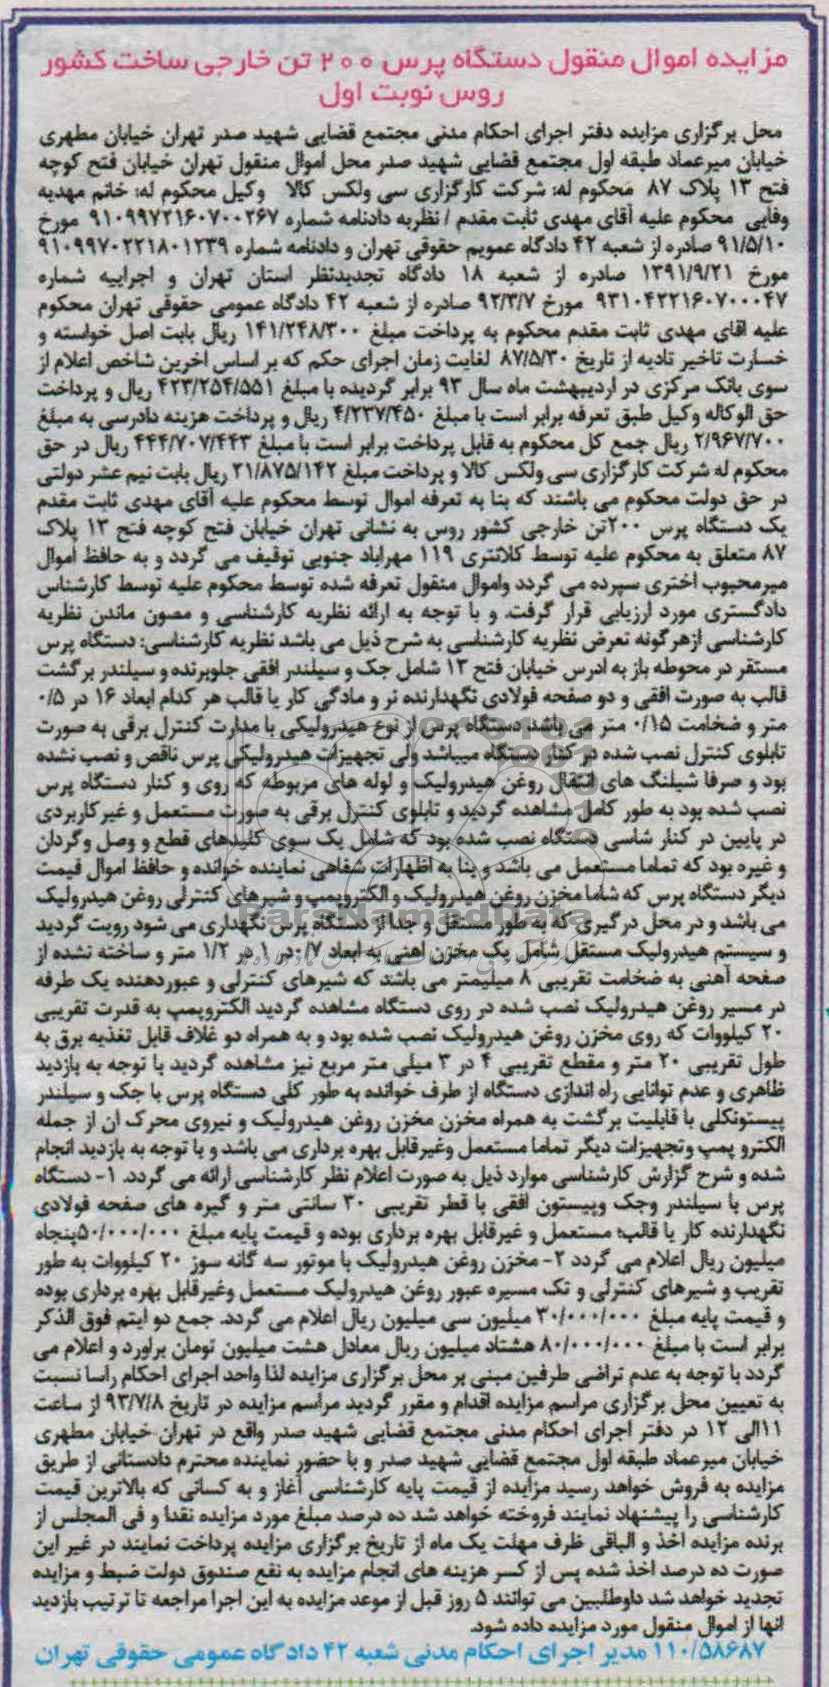 مزایده اموال منقول دستگاه پرس ۲۰۰ تن خارجی ساخت کشور
روس نوبت اول
محل برگزاری مزایده دفتر اجرای احکام مدنی مجتمع قضایی شهید صدر تهران خیابان مطهری
خیابان میرعماد طبقه اول مجتمع قضایی شهید صدر محل اموال منقول تهران خیابان فتح کوچه
فتح ۱۳ پلاک ۸۷ محکوم له: شرکت کارگزاری سی ولکس کالا وکیل محکوم له: خانم مهدیه
وفایی محکوم علیه آقای مهدی ثابت مقدم / نظربه دادنامه شماره ۹۱۰۹۹۷۲۱۶۰۷۰۰۲۶۷ مورخ
۹۱/۵/۱۰ صادره از شعبه ۴۲ دادگاه عمویم حقوقی تهران و دادنامه شماره ۹۱۰۹۹۷۰۲۲۱۸۰۱۲۳۹
مورخ ۱۳۹۱/۹/۲۱ صادره از شعبه ۱۸ دادگاه تجدیدنظر استان تهران و اجراییه شماره
۹۳۱۰۴۲۲۱۶۰۷۰۰۰۴۷ مورخ ۹۲/۳/۷ صادره از شعبه ۴۲ دادگاه عمومی حقوقی تهران محکوم
علیه اقای مهدی ثابت مقدم محکوم به پرداخت مبلغ ۱۴۱/۲۴۸/۳۰۰ ریال بابت اصل خواسته و
خسارت تاخیر تادیه از تاریخ ۸۷/۵/۳۰ لغایت زمان اجرای حکم که بر اساس اخرین شاخص اعلام از
سوی بانک مرکزی در اردیبهشت ماه سال ۹۳ برابر گردیده با مبلغ ۴۲۳/۲۵۴/۵۵۱ ریال و پرداخت
حق الوکاله وکیل طبق تعرفه برابر است با مبلغ ۴/۲۳۷/۴۵۰ ریال و پرداخت هزینه دادرسی به مبلغ
۲/۹۶۷/۷۰۰ ریال جمع کل محکوم به قابل پرداخت برابر است با مبلغ ۴۴۴/۷۰۷/۴۴۳ ریال در حق
محکوم له شرکت کارگزاری سی ولکس کالا و پرداخت مبلغ ۲۱/۸۷۵/۱۴۲ ریال بابت نیم عشر دولتی
در حق دولت محکوم می باشند که بنا به تعرفه اموال توسط محکوم علیه آقای مهدی ثابت مقدم
یک دستگاه پرس ۲۰۰تن خارجی کشور روس به نشانی تهران خیابان فتح کوچه فتح ۱۳ پلاک
۸۷ متعلق به محکوم علیه توسط کلانتری ۱۱۹ مهراباد جنوبی توقیف می گردد و به حافظ اموال
میرمحبوب اختری سپرده می گردد واموال منقول تعرفه شده توسط محکوم علیه توسط کارشناس
دادگستری مورد ارزیابی قرار گرفت. و با توجه به ارائه نظریه کارشناسی و مصون ماندن نظریه
کارشناسی ازهرگونه تعرض نظریه کارشناسی به شرح ذیل می باشد نظریه کارشناسی: دستگاه پرس
مستقر در محوطه باز به ادرس خیابان فتح ۱۳ شامل جک و سیلندر افقی جلوبرنده و سیلندر برگشت
قالب به صورت افقی و دو صفحه فولادی نگهدارنده نر و مادگی کار یا قالب هر کدام ابعاد ۱۶ در ۰/۵
متر و ضخامت ۰/۱۵ متر می باشد دستگاه پرس از نوع هیدرولیکی با مدارت کنترل برقی به صورت
تابلوی کنترل نصب شده در کنار دستگاه میباشد ولی تجهیزات هیدرولیکی پرس ناقص و نصب نشده
بود و صرفا شیلنگ های انتقال روغن هیدرولیک و لوله های مربوطه که روی و کنار دستگاه پرس
نصب شده بود به طور کامل مشاهده گردید و تابلوی کنترل برقی به صورت مستعمل و غیرکاربردی
در پایین در کنار شاسی دستگاه نصب شده بود که شامل یک سوی کلیدهای قطع و وصل وگردان
و غیره بود که تماما مستعمل می باشد و بنا به اظهارات شفاهی نماینده خوانده و حافظ اموال قیمت
دیگر دستگاه پرس که شاما مخزن روغن هیدرولیک و الکتروپمپ و شیرهای کنترلی روغن هیدرولیک
می باشد و در محل درگیری که به طور مستقل و جدا از دستگاه پرس نگهداری می شود رویت گردید
و سیستم هیدرولیک مستقل شامل یک مخزن اهنی به ابعاد ۰/۷ در ۱ در ۱/۲ متر و ساخته نشده از
صفحه آهنی به ضخامت تقریبی ۸ میلیمتر می باشد که شیرهای کنترلی و عبوردهنده یک طرفه
در مسیر روغن هیدرولیک نصب شده در روی دستگاه مشاهده گردید الکتروپمپ به قدرت تقریبی
۲۰ کیلووات که روی مخزن روغن هیدرولیک نصب شده بود و به همراه دو غلاف قابل تغذیه برق به
طول تقریبی ۲۰ متر و مقطع تقریبی ۴ در ۳ میلی متر مربع نیز مشاهده گردید با توجه به بازدید
ظاهری و عدم توانایی راه اندازی دستگاه از طرف خوانده به طور کلی دستگاه پرس با جک و سیلندر
پیستونکلی با قابلیت برگشت به همراه مخزن مخزن روغن هیدرولیک و نیروی محرک ان از جمله
الکترو پمپ وتجهیزات دیگر تماما مستعمل وغیرقابل بهره برداری می باشد و با توجه به بازدید انجام
شده و شرح گزارش کارشناسی موارد ذیل به صورت اعلام نظر کارشناسی ارائه می گردد. ۱- دستگاه
پرس با سیلندر وجک وپیستون افقی با قطر تقریبی ۳۰ سانتی متر و گیره های صفحه فولادی
نگهدارنده کار یا قالب؛ مستعمل و غیرقابل بهره برداری بوده و قیمت پایه مبلغ ۵۰/۰۰۰/۰۰۰پنجاه
میلیون ریال اعلام می گردد ۲- مخزن روغن هیدرولیک با موتور سه گانه سوز ۲۰ کیلووات به طور
تقریب و شیرهای کنترلی و تک مسیره عبور روغن هیدرولیک مستعمل وغیرقابل بهره برداری بوده
و قیمت پایه مبلغ ۳۰/۰۰۰/۰۰۰ میلیون سی میلیون ریال اعلام می گردد. جمع دو ایتم فوق الذکر
برابر است با مبلغ ۸۰/۰۰۰/۰۰۰ هشتاد میلیون ریال معادل هشت میلیون تومان براورد و اعلام می
گردد با توجه به عدم تراضی طرفین مبنی بر محل برگزاری مزایده لذا واحد اجرای احکام راسا نسبت
به تعیین محل برگزاری مراسم مزایده اقدام و مقرر گردید مراسم مزایده در تاریخ ۹۳/۷/۸ از ساعت
۱۱الی ۱۲ در دفتر اجرای احکام مدنی مجتمع قضایی شهید صدر واقع در تهران خیابان مطهری
خیابان میرعماد طبقه اول مجتمع قضایی شهید صدر و با حضور نماینده محترم دادستانی از طریق
مزایده به فروش خواهد رسید مزایده از قیمت پایه کارشناسی آغاز و به کسانی که بالاترین قیمت
کارشناسی را پیشنهاد نمایند فروخته خواهد شد ده درصد مبلغ مورد مزایده نقدا و فی المجلس از
برنده مزایده اخذ و الباقی ظرف مهلت یک ماه از تاریخ برگزاری مزایده پرداخت نمایند در غیر این
صورت ده درصد اخذ شده پس از کسر هزینه های انجام مزایده به نفع صندوق دولت ضبط و مزایده
تجدید خواهد شد داوطلبین می توانند ۵ روز قبل از موعد مزایده به این اجرا مراجعه تا ترتیب بازدید
انها از اموال منقول مورد مزایده داده شود.
۱۱۰/۵۸۶۸۷ مدیر اجرای احکام مدنی شعبه ۴۲ دادگاه عمومی حقوقی تهران
ParsNamadData